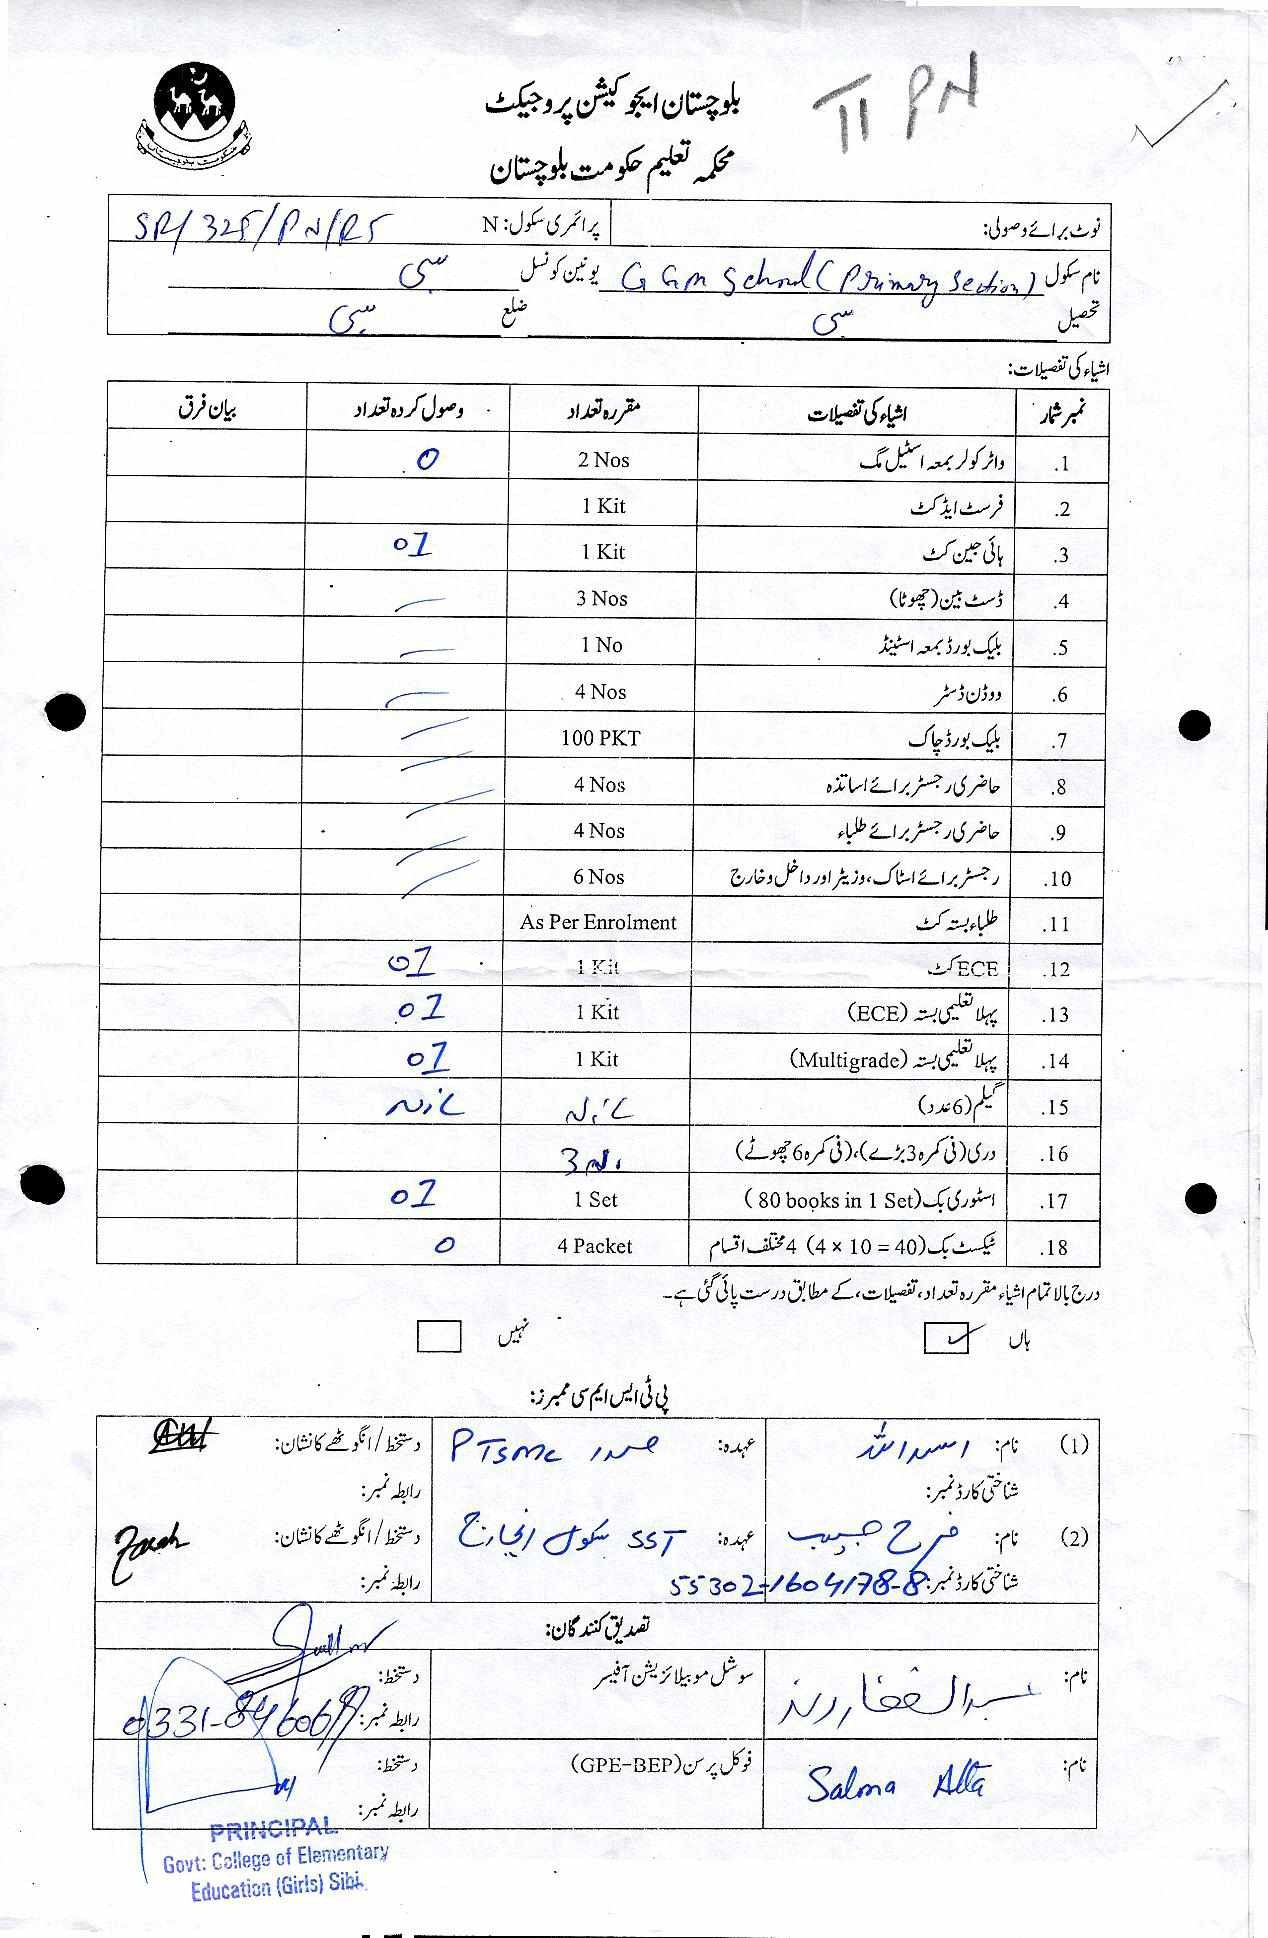 II PN
بلوچستان ایجوکیشن پروجیکٹ
محکمہ تعلیم حکومت بلوچستان
حکومت بلوچستان
نوٹ برائے وصولی: پرائمری سکول: N SR/325/PN/R5
نام سکول GGM School (Primary Section) یونین کونسل سبی
تحصیل سبی ضلع سبی
اشیاء کی تفصیلات:
نمبر شمار اشیاء کی تفصیلات مقررہ تعداد وصول کردہ تعداد بیان فرق
1. واٹر کولر بمعہ اسٹیل مگ 2 Nos 0
2. فرسٹ ایڈ کٹ 1 Kit
3. ہائی جین کٹ 1 Kit 01
4. ڈسٹ بین (چھوٹا) 3 Nos —
5. بلیک بورڈ بمعہ اسٹینڈ 1 No —
6. ووڈن ڈسٹر 4 Nos —
7. بلیک بورڈ چاک 100 PKT —
8. حاضری رجسٹر برائے اساتذہ 4 Nos —
9. حاضری رجسٹر برائے طلباء 4 Nos —
10. رجسٹر برائے اسٹاک، وزیٹر اور داخل و خارج 6 Nos —
11. طلباء بستہ کٹ As Per Enrolment
12. ECE کٹ 1 Kit 01
13. پہلا تعلیمی بستہ (ECE) 1 Kit 01
14. پہلا تعلیمی بستہ (Multigrade) 1 Kit 01
15. گیلم (6 عدد) Nil Nil
16. دری (فی کمرہ 3 بڑے)، (فی کمرہ 6 چھوٹے) 3 No.
17. اسٹوری بک (80 books in 1 Set) 1 Set 01
18. ٹیکسٹ بک (4 × 10 = 40) 4 مختلف اقسام 4 Packet 0
درج بالا تمام اشیاء مقررہ تعداد، تفصیلات، کے مطابق درست پائی گئی ہے۔
ہاں ✓ نہیں
پی ٹی ایس ایم سی ممبرز:
(1) نام: اسد اللہ عہدہ: صدر PTSMC دستخط/انگوٹھے کا نشان:
شناختی کارڈ نمبر: رابطہ نمبر:
(2) نام: فرح حبیب عہدہ: SST سکول انچارج دستخط/انگوٹھے کا نشان: Farah
شناختی کارڈ نمبر: 55302-1604178-8 رابطہ نمبر:
تصدیق کنندگان:
نام: عبدالغفار رند سوشل موبیلائزیشن آفیسر دستخط:
رابطہ نمبر:
نام: Salma Atta فوکل پرسن (GPE-BEP) دستخط:
رابطہ نمبر:
PRINCIPAL
Govt: College of Elementary
Education (Girls) Sibi.